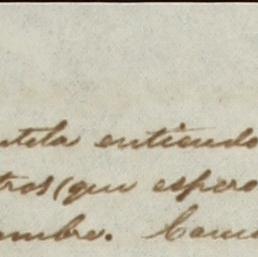 utela entiendo
tros (que espero
ambre. Cam